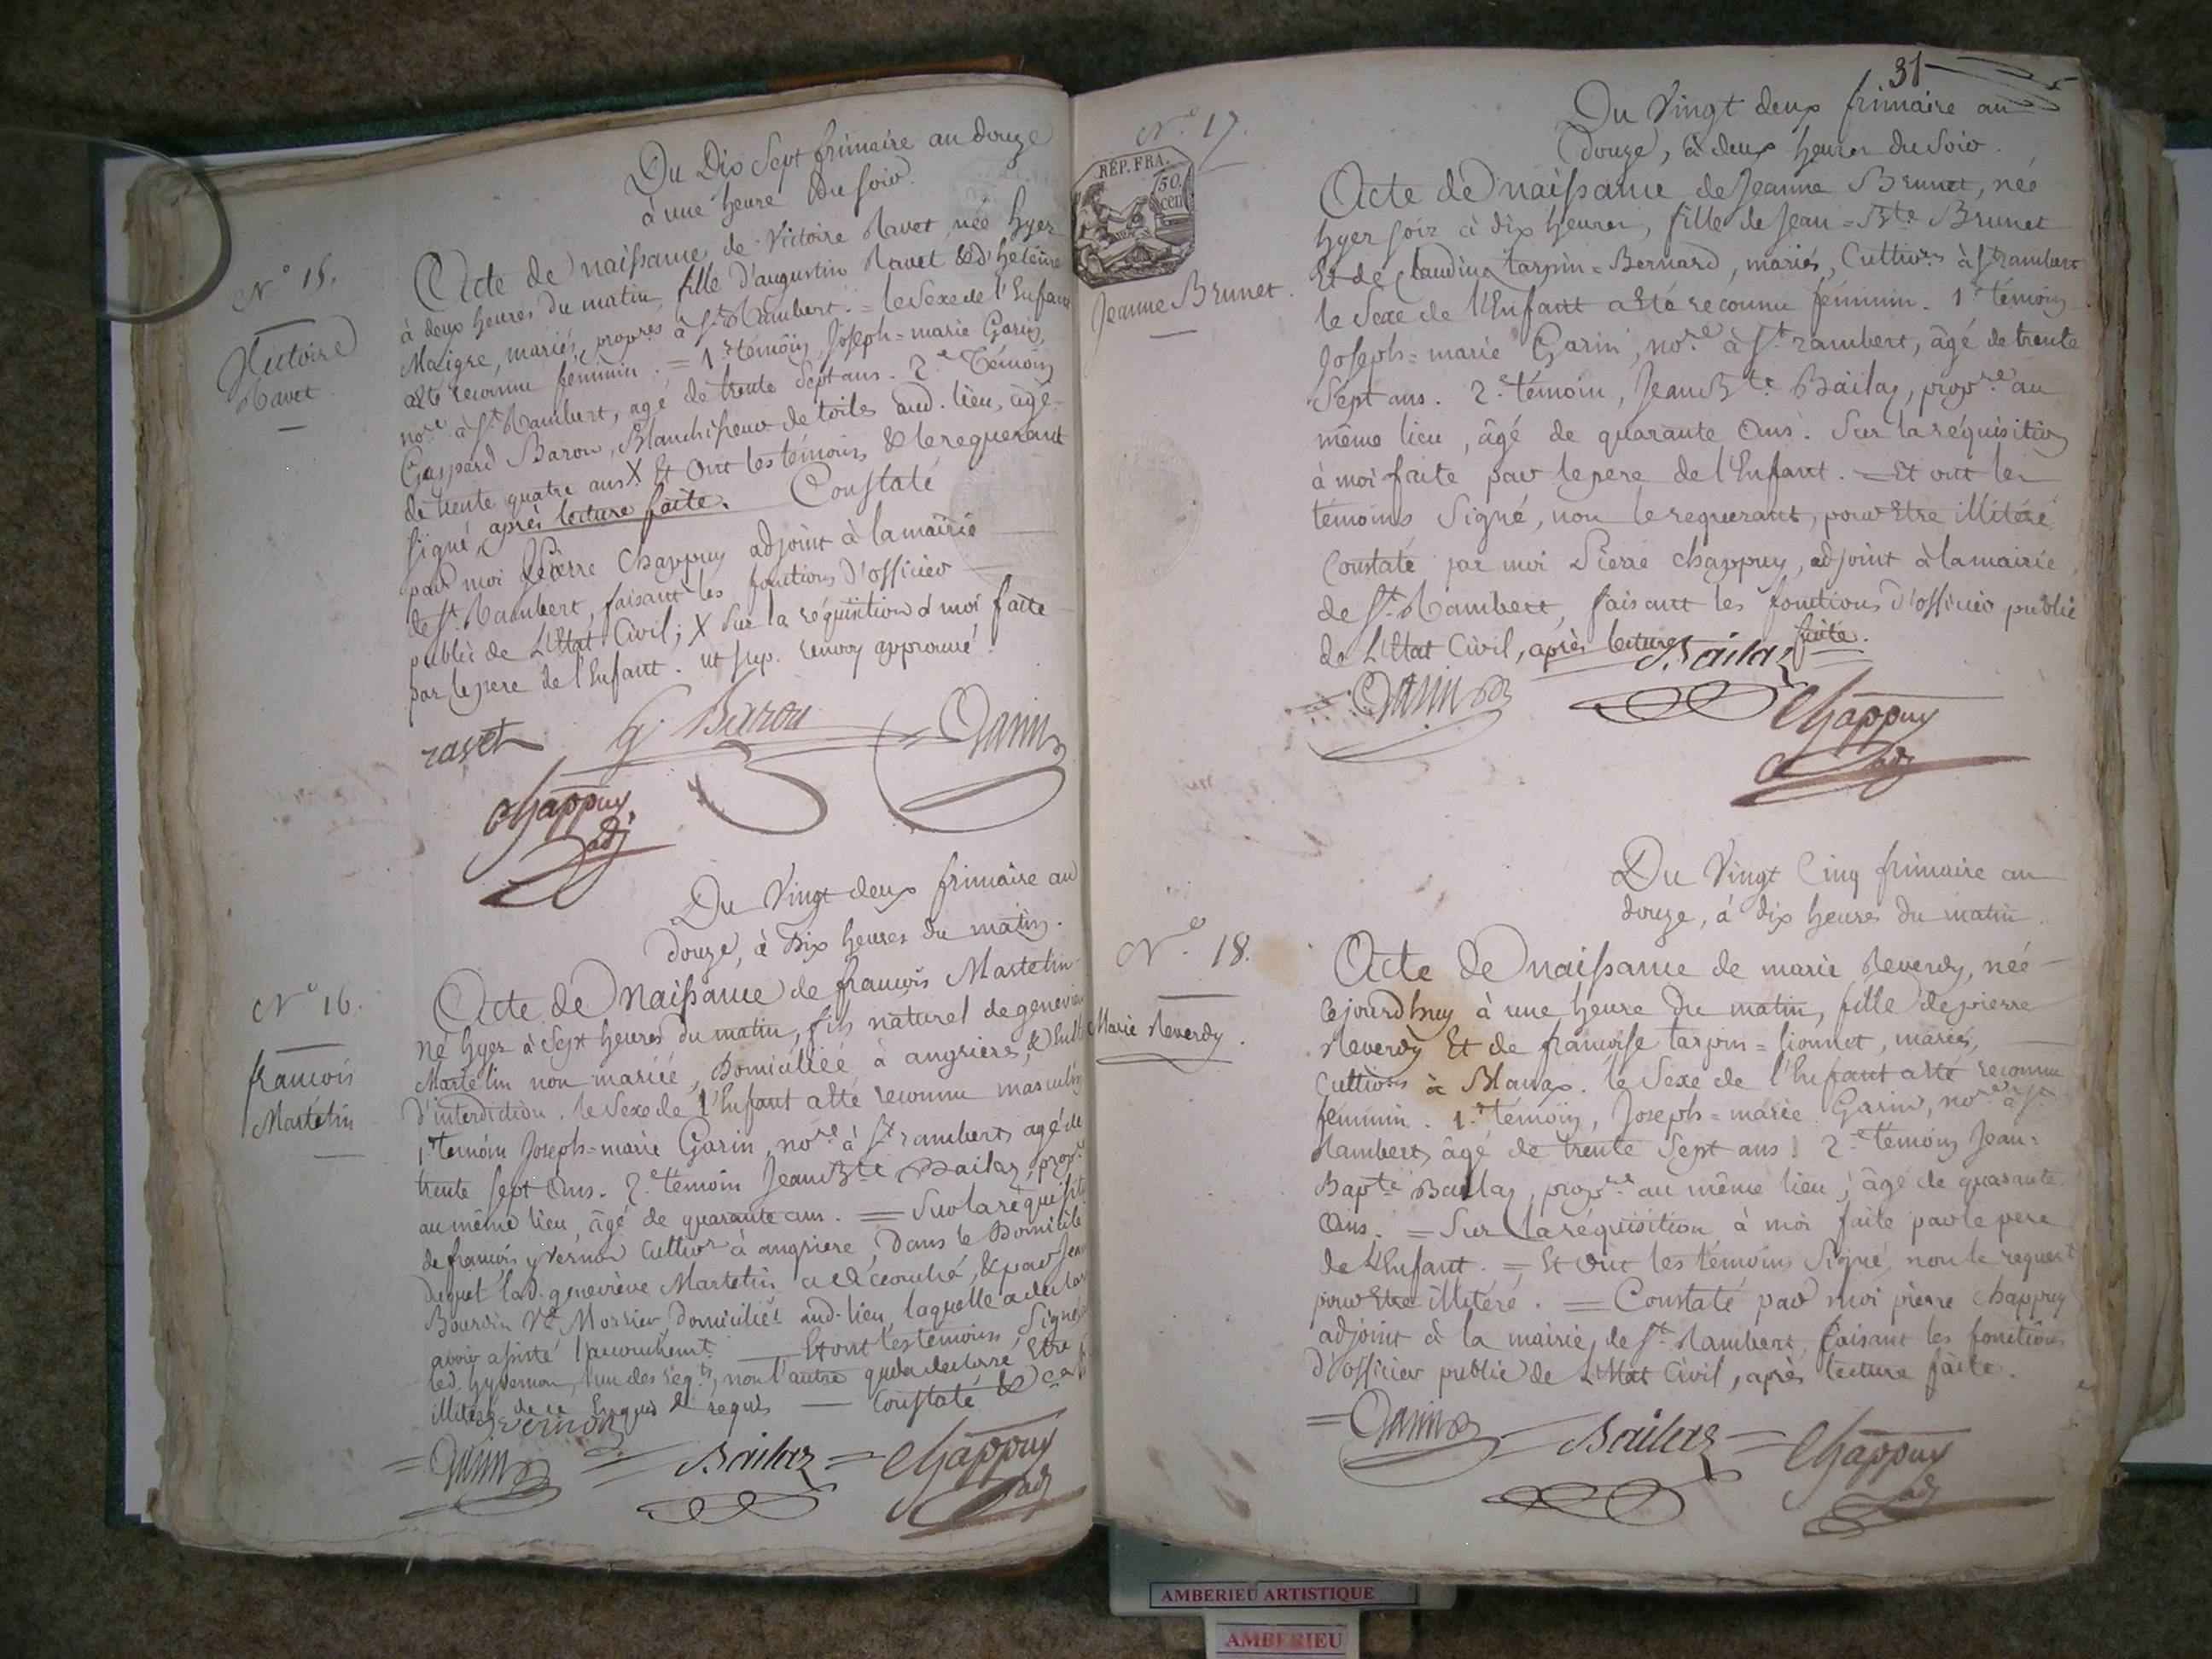 Du Dix Sept frimaire an douze
à une heure du soir.
N.º 15.
Victoire
Ravet
Acte de naissance de Victoire Ravet née hyer
à deux heures du matin, fille d'augustin Ravet & d'heleine
Maigre, mariés, propres à St. Rambert. = le Sexe de l'Enfant
a Eté reconnu féminin. = 1.r témoin Joseph = marie Garin,
nore. à St. Rambert, agé de trente Sept ans. 2.e Témoin
Gaspard Baron, Blanchisseur de toiles aud. lieu, agé
de trente quatre ans X Et Ont les témoins & le requerant
signé, après lecture faite. Constaté
par moi Pierre Chappuy adjoint à la mairie
de St. Rambert, faisant les fonctions d'officier
public de L'Etat Civil; X Sur la réquisition à moi faite
par le pere de l'Enfant. ut sup. renvoy approuvé.
ravet G Baron Garin
Chappuy
adj
Du Vingt deux frimaire an
douze, à Dix heures du matin.
N.º 16.
francois
Martelin
Acte de Naissance de francois Martelin
né hyer à Sept heures du matin, fils naturel de genevieve
Martelin non mariée, Domiciliée à angrieres, &
d'interdiction. le Sexe de l'Enfant a Eté reconnu masculin
1.r temoin Joseph = marie Garin, nore. à St. rambert, agé de
trente sept Ans. 2.e témoin Jean Bte. Bailaz, propre
au même lieu, âgé de quarante ans. = Sur la réquisit
de francois yvernon Cultivr. à angriere, Dans le Domicile
duquel lad. geneviève Martelin a Eté accouchée, & par Jean
Bourdin Ve. Morrier Domiciliée aud. lieu, laquelle a declaré
avoir assisté l'accouchemt. Et ont les temoins Signé,
led. hyvernon, l'un des reqts., non l'autre qui a declaré Etre
illiteré de ce Enquis & requis — Constaté &ca
yvernon
= Garin = Bailaz = Chappuy
adj
31
Du Vingt deux frimaire an
Douze, à deux heures du soir.
N.º 17.
REP. FRA.
50.
cen
Jeanne Brunet.
Acte de naissance de Jeanne Brunet, née
hyer soir à dix heures, fille de Jean = Bte. Brunet
Et de Claudine tarpin = Bernard, mariés, Cultivrs. à St rambert
le Sexe de l'Enfant a Eté reconnu féminin. 1.r témoin
Joseph = marie Garin, nore. à St. rambert, âgé de trente
Sept ans. 2.e témoin, Jean Bte. Bailaz, propre. au
même lieu, âgé de quarante Ans. Sur la réquisition
à moi faite par le pere de l'Enfant. = Et ont les
témoins Signé, non le requerant, pour Etre illitéré
Constaté par moi Pierre Chappuy, adjoint à la mairie
de St. Rambert, faisant les fonctions d'officier public
de L'Etat Civil, après lecture faite.
Garin Bailaz Chappuy
adj
Du Vingt Cinq frimaire an
douze, à dix heures du matin.
N.º 18.
Marie Reverdy.
Acte de naissance de marie Reverdy, née
Cejourdhuy à une heure du matin, fille de pierre
Reverdy Et de francoise tarpin = lionnet, mariés,
Cultivrs. à Blanax. le Sexe de l'Enfant a Eté reconnu
feminin. 1.r témoin, Joseph = marie Garin, nore. à St
Rambert, âgé de trente Sept ans. 2.e témoin Jean =
Bapte. Bailaz, propre. au même lieu, âgé de quarante
Ans. = Sur la réquisition à moi faite par le pere
de L'Enfant. = Et Ont les témoins Signé, non le requert
pour Etre illitéré. = Constaté par moi pierre Chappuy
adjoint à la mairie de St. Rambert, faisant les fonctions
d'officier public de L'Etat Civil, après lecture faite.
= Garin = Bailaz = Chappuy
adj
AMBERIEU ARTISTIQUE
AMBERIEU